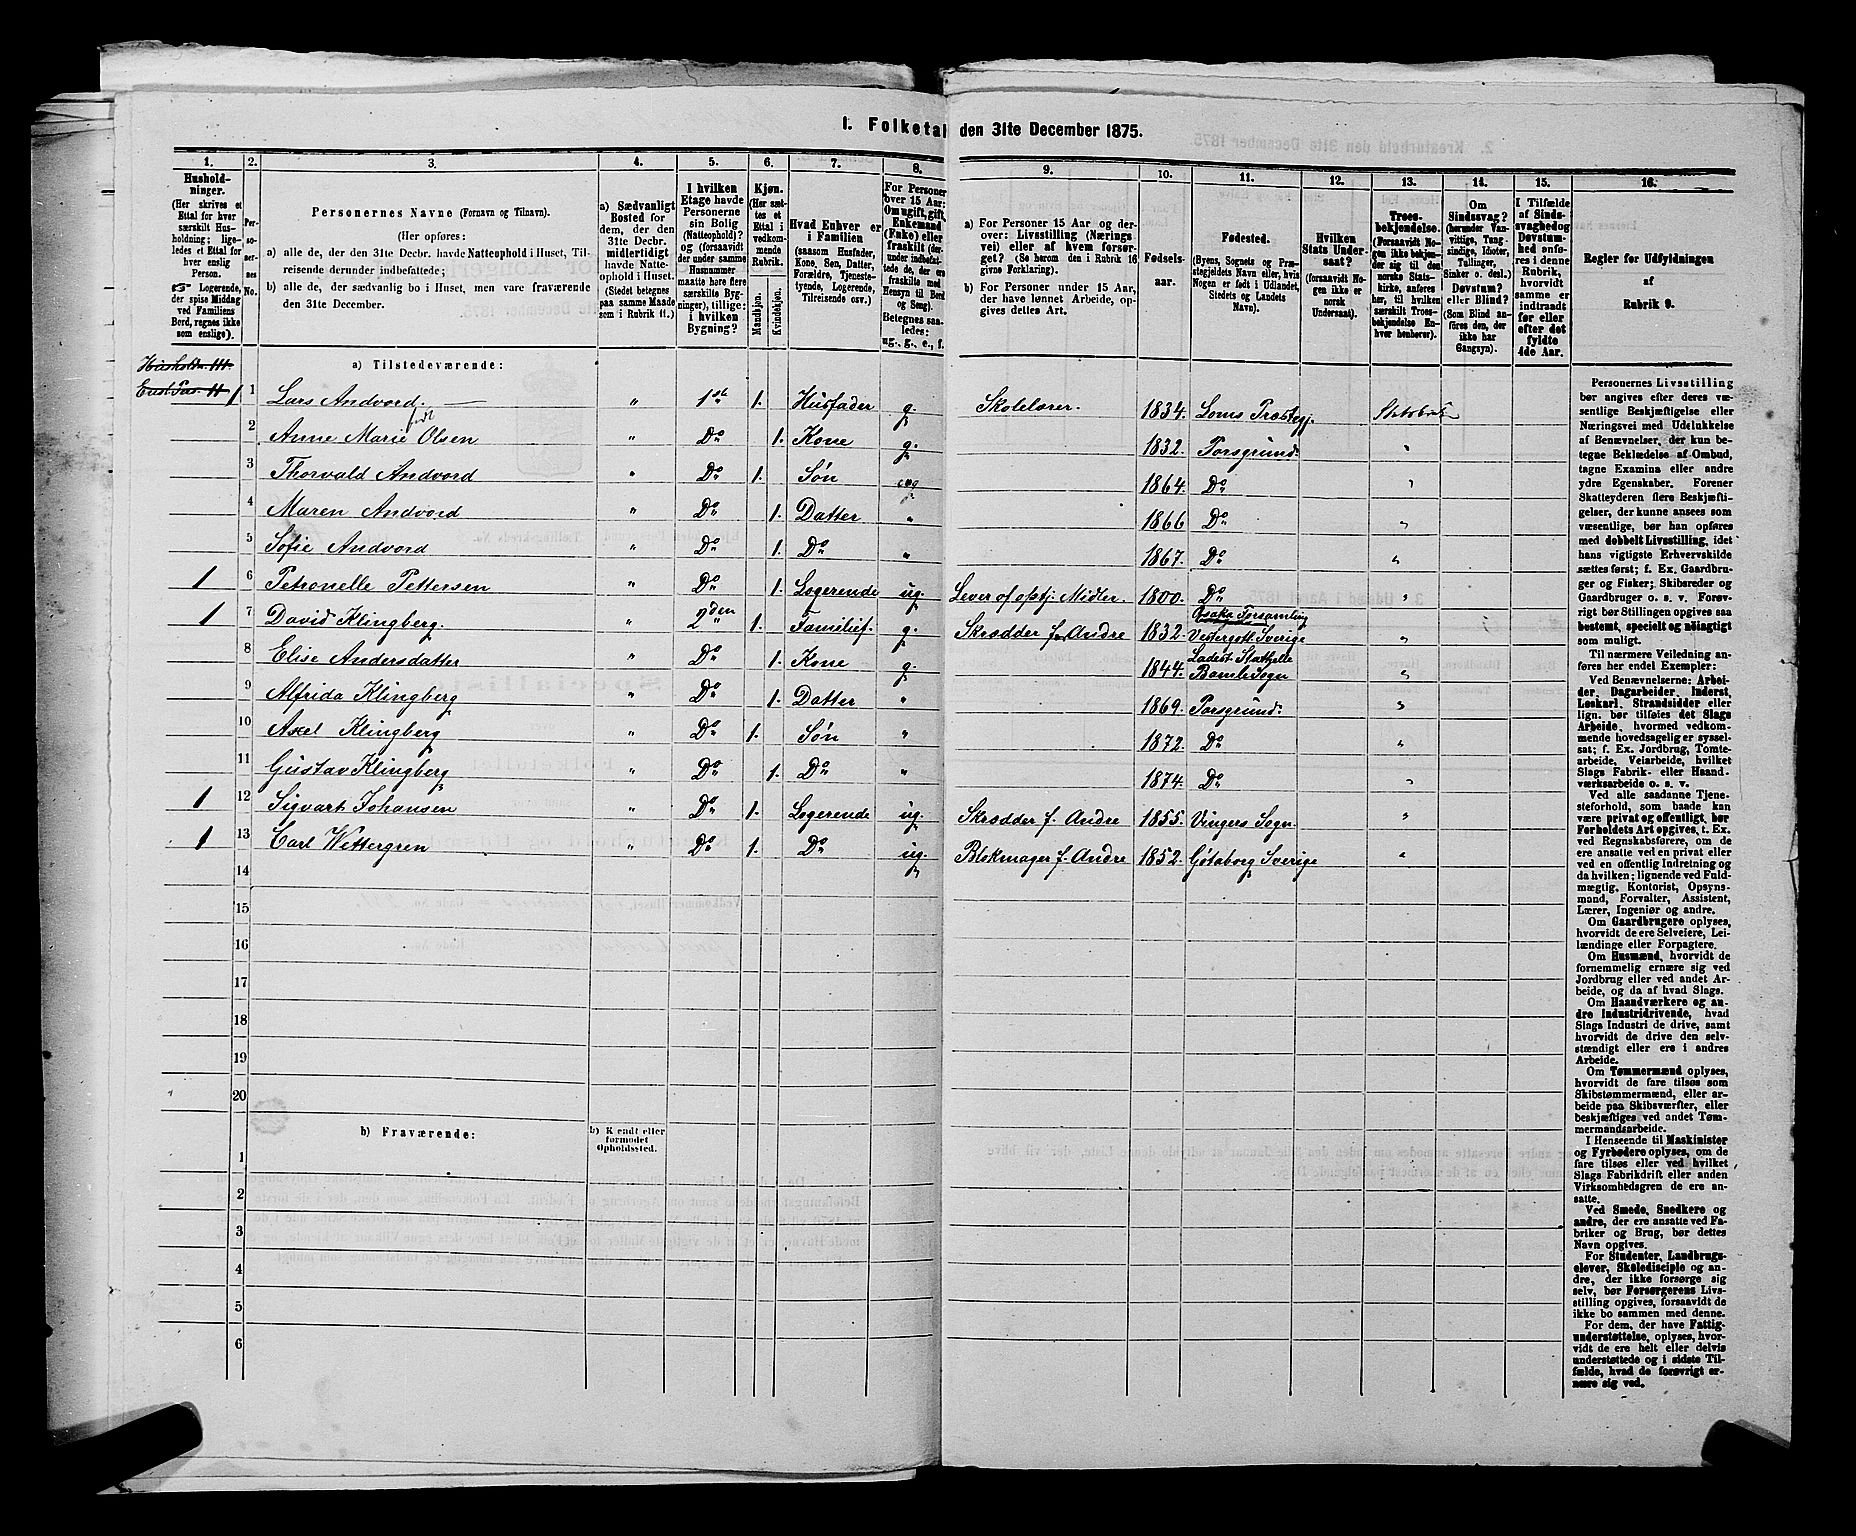 I. Folketal den 31te December 1875.
1. 2. 3. 4. 5. 6. 7. 8. 9. 10. 11. 12. 13. 14. 15. 16.
Hushold-
ninger.
(Her skrives et
Ettal for hver
særskilt Hus-
holdning; lige-
ledes et Ettal for
hver enslig
Person.
☞ Logerende,
der spise Middag
ved Familiens
Bord, regnes ikke
som enslige).
Per-
so-
ner-
nes
No.
Personernes Navne (Fornavn og Tilnavn).
(Her opføres:
a) alle de, der den 31te Decbr. havde Natteophold i Huset, Til-
reisende derunder indbefattede;
b) alle de, der sædvanlig bo i Huset, men vare fraværende
den 31te December.
a) Sædvanligt
Bosted for
dem, der den
31te Decbr.
midlertidigt
havde Natte-
ophold i Huset.
(Stedet betegnes
paa samme Maade
som i Rubrik 11.)
I hvilken
Etage havde
Personerne
sin Bolig
(Natteophold)?
og (forsaavidt
der under samme
Husnummer
maatte høre flere
særskilte Byg-
ninger), tillige:
i hvilken
Bygning?
Kjøn.
(Her sæt-
tes et
Ettal i
vedkom-
mende
Rubrik.
Mandkjøn.
Kvindekjøn.
Hvad Enhver er
i Familien
(saasom Husfader,
Kone, Søn, Datter,
Forældre, Tjeneste-
tyende, Logerende,
Tilreisende osv.)
For Personer
over 15 Aar:
Om ugift, gift,
Enkemand
(Enke) eller
fraskilt (der-
under indbefat-
tede de, der ere
fraskilte med
Hensyn til Bord
og Seng).
Betegnes saa-
ledes:
ug., g., e., f.
a) For Personer 15 Aar og der-
over: Livsstilling (Nærings
vei) eller af hvem forsør-
get? (Se herom den i Rubrik 16
givne Forklaring).
b) For Personer under 15 Aar,
der have lønnet Arbeide, op-
gives dettes Art.
Fødsels-
aar.
Fødested.
(Byens, Sognets og Præ-
stegjeldets Navn eller, hvis
Nogen er født i Udlandet,
Stedets og Landets
Navn).
Hvilken
Stats Under-
saat?
(forsaavidt No-
gen ikke er
norsk
Undersaat).
Troes-
bekjendelse.
(Forsaavidt No-
gen ikke bekjen-
der sig til den
norske Stats-
kirke, anføres
her, til hvilken
særskilt Troes-
bekjendelse En-
hver henhører).
Om
Sindssvag?
(herunder Van-
vittige, Tung-
sindige, Idioter,
Tullinger,
Sinker o. desl.)
Døvstum?
eller Blind?
(Som Blind an-
føres den, der
ikke har
Gangsyn).
I Tilfælde
af Sinds-
svaghed og
Døvstum-
hed anfø-
res i denne
Rubrik,
hvorvidt
samme er
indtraadt
før eller
efter det
fyldte
4de Aar.
Regler for Udfyldningen
af
Rubrik 9.
a) Tilstedeværende:
1 1 Lars Andvord. — " 1st 1. Husfader g. Skolelærer. 1834. Loms Præstegj. Statskirke
født
2 Anne Marie Olsen " Do 1. Kone g. 1832. Porsgrund. "
3 Thorvald Andvord " Do 1. Søn ug 1864. Do "
4 Maren Andvord " Do 1. Datter " 1866 Do "
5 Sofie Andvord " Do 1. Do " 1867. Do "
1 6 Petronelle Pettersen " Do 1. Logerende ug. Lever af opstj. Midler. 1800. Do "
1 7 David Klingberg. " 2den 1. Familief. g. Skrædder for Andre 1832. Forsamling Vestergøtl. Sverige "
8 Elise Andersdatter " Do 1. Kone g. 1844. Ladest. Stathelle Bamle Sogn "
9 Alfrida Klingberg " Do 1. Datter " 1869. Porsgrund. "
10 Axel Klingberg " Do 1. Søn " 1872. Do "
11 Gustav Klingberg " Do 1. Do " 1874. Do "
1 12 Sigvart Johansen " Do 1. Logerende ug. Skrædder f. Andre 1855. Vingers Sogn. "
1 13 Carl Wettergren " Do 1. Do ug. Blokmager f. Andre 1852. Gøtaborg Sverige "
14
15
16
17
18
19
20
b) Fraværende:
b) Kjendt eller
formodet
Opholdssted.
1
2
3
4
5
6
Personernes Livsstilling
bør angives efter deres væ-
sentlige Beskjæftigelse eller
Næringsvei med Udelukkelse
af Benævnelser, der kun be-
tegne Beklædelse af Ombud,
tagne Examina eller andre
ydre Egenskaber. Forener
Skatteyderen flere Beskjæfti-
gelser, der kunne ansees som
væsentlige, bør han opføres
med dobbelt Livsstilling, idet
hans vigtigste Erhvervskilde
sættes først; f. Ex. Gaardbru-
ger og Fisker; Skibsreder og
Gaardbruger o. s. v. Forøv-
rigt bør Stillingen opgives saa
bestemt, specielt og nøiagtigt
som muligt.
Til nærmere Veiledning an-
føres her endel Exempler:
Ved Benævnelserne: Arbei-
der, Dagarbeider, Inderst,
Løskarl, Strandsidder eller
lign. bør tilføies det Slags
Arbeide, hvormed vedkom-
mende hovedsagelig er syssel-
sat; f. Ex. Jordbrug, Tomte-
arbeide, Veiarbeide, hvilket
Slags Fabrik- eller Haand-
værksarbeide o. s. v.
Ved alle saadanne Tjene-
steforhold, som baade kan
være privat og offentligt, bør
Forholdets Art opgives, t. Ex.
ved Regnskabsførere, om de
ere ansatte ved en privat eller
ved en offentlig Indretning og
da hvilken; lignende ved Fuld-
mægtig, Kontorist, Opsyns-
mand, Forvalter, Assistent,
Lærer, Ingeniør og andre.
Om Gaardbrugere oplyses,
hvorvidt de ere Selveiere, Lei-
lændinge eller Forpagtere.
Om Husmænd, hvorvidt de
fornemmelig ernære sig ved
Jordbrug eller ved andet Ar-
beide, og da af hvad Slags.
Om Haandværkere og an-
dre Industridrivende, hvad
Slags Industri de drive, samt
hvorvidt de drive den selv-
stændigt eller ere i andres
Arbeide.
Om Tømmermænd oplyses,
hvorvidt de fare tilsøs som
Skibstømmermænd, eller ar-
beide paa Skibsværfter, eller
beskjæftiges ved andet Tøm-
mermandsarbeide.
I Henseende til Maskinister
og Fyrbødere oplyses, om de
fare tilsøs eller ved hvilket
Slags Fabrikdrift eller anden
Virksomhedsgren de ere an-
satte.
Ved Smede, Snedkere og
andre, der ere ansatte ved Fa-
briker og Brug, bør dettes
Navn opgives.
For Studenter, Landbrugs-
elever, Skoledisciple og an-
dre, der ikke forsørge sig
selv, bør Forsørgerens Livs-
stilling opgives, forsaavidt de
ikke bo sammen med denne.
For dem, der have Fattig-
understøttelse, oplyses, hvor-
vidt de ere helt eller delvis
understøttede og i sidste Til-
fælde, hvad de forøvrigt er-
nære sig ved.